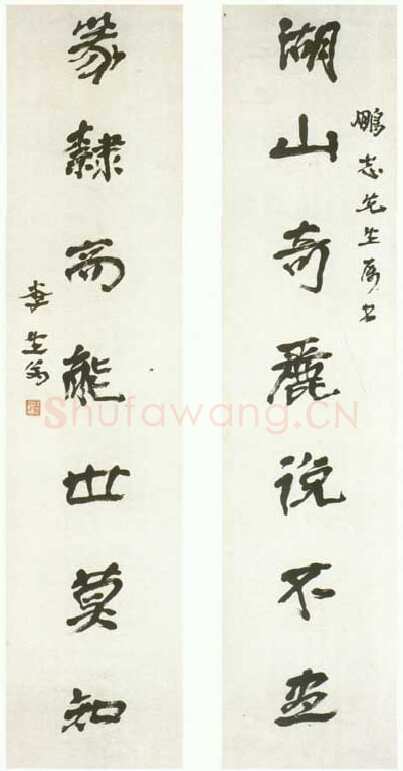 鵬志先生屬書
湖山奇麗説不盡
篆隸高能世莫知
李生翁
Shufawang.CN